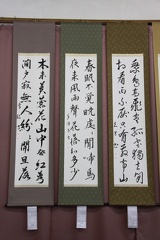 衆鳥高飛盡孤雲獨去閒
相看両不厭只有敬亭山
春眠不覺曉處々聞啼鳥
夜来風雨聲花落知多少
木末芙蓉花山中發紅萼
澗戸寂無人紛々開且落